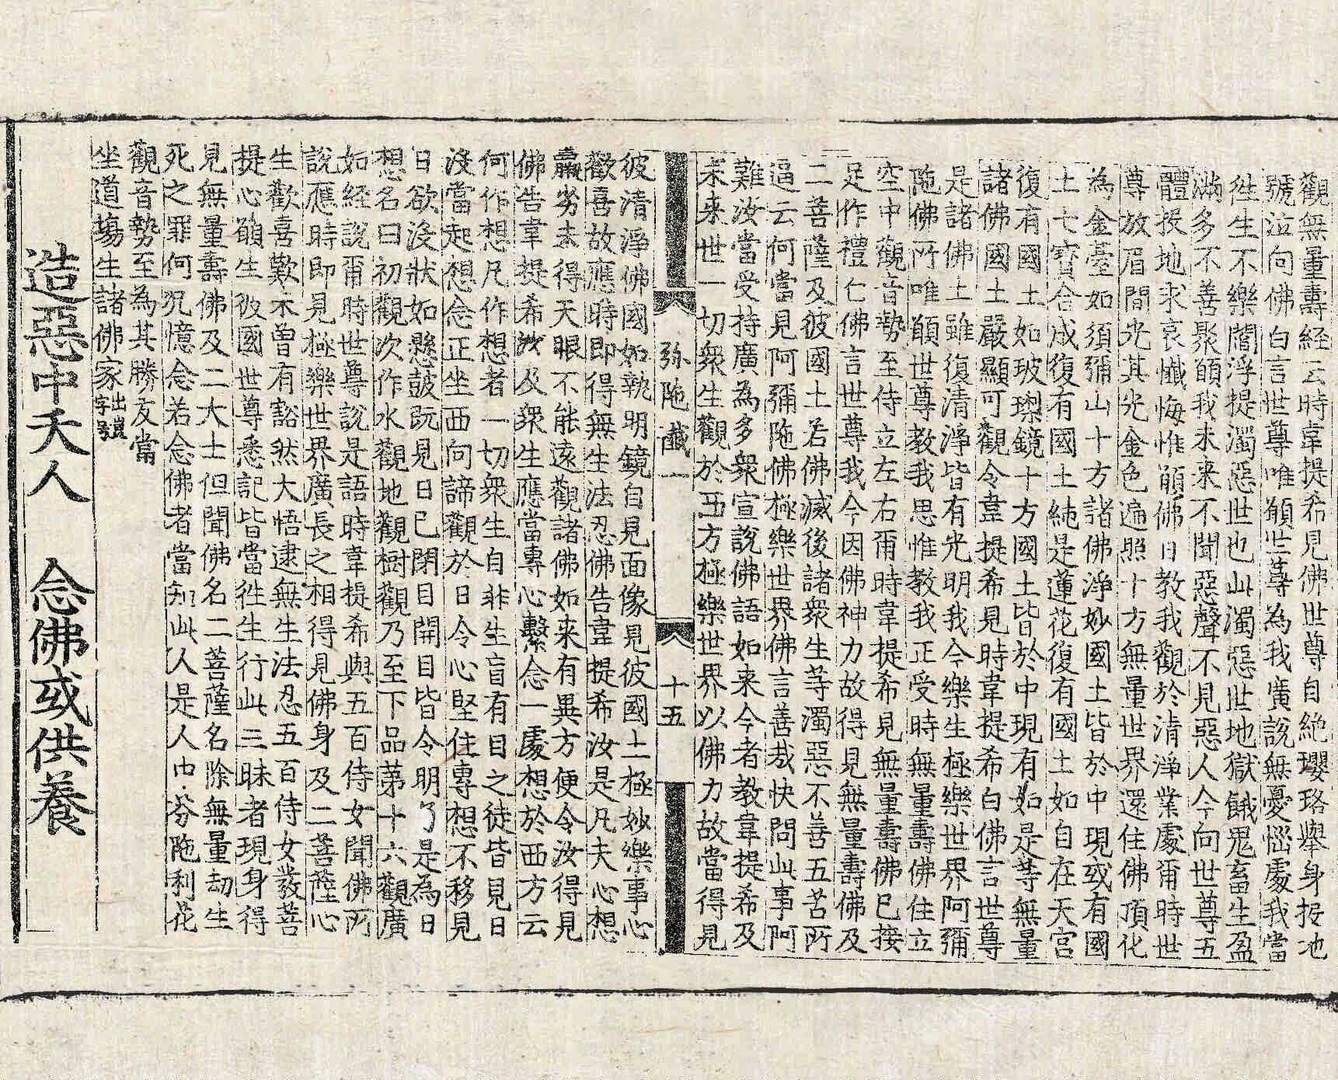 觀無量壽經云時韋提希見佛世尊自絶瓔珞舉身投地
號泣向佛白言世尊唯願世尊為我廣說無憂惱處我當
徃生不樂閻浮提濁惡世也此濁惡世地獄餓鬼畜生盈
滿多不善聚願我未來不聞惡聲不見惡人今向世尊五
體投地求哀懺悔惟願佛日教我觀於清淨業處爾時世
尊放眉間光其光金色遍照十方無量世界還住佛頂化
為金臺如須彌山十方諸佛淨妙國土皆於中現或有國
土七寶合成復有國土純是蓮花復有國土如自在天宮
復有國土如玻瓈鏡十方國土皆於中現有如是等無量
諸佛國土嚴顯可觀令韋提希見時韋提希白佛言世尊
是諸佛土雖復清淨皆有光明我今樂生極樂世界阿彌
陁佛所唯願世尊教我思惟教我正受時無量壽佛住立
空中觀音勢至侍立左右爾時韋提希見無量壽佛已接
足作禮仁佛言世尊我今因佛神力故得見無量壽佛及
二菩薩及彼國土若佛滅後諸衆生等濁惡不善五苦所
逼云何當見阿彌陁佛極樂世界佛言善哉快問此事阿
難汝當受持廣為多衆宣說佛語如來今者教韋提希及
未來世一切衆生觀於西方極樂世界以佛力故當得見
弥陁藏一 十五
彼清淨佛國如執明鏡自見面像見彼國土極妙樂事心
歡喜故應時即得無生法忍佛告韋提希汝是凡夫心想
羸劣未得天眼不能遠觀諸佛如來有異方便令汝得見
佛告韋提希汝及衆生應當專心繫念一處想於西方云
何作想凡作想者一切衆生自非生盲有目之徒皆見日
沒當起想念正坐西向諦觀於日令心堅住專想不移見
日欲沒狀如懸鼓既見日已閉目開目皆令明了是為日
想名曰初觀次作水觀地觀樹觀乃至下品苐十六觀廣
如經說爾時世尊說是語時韋提希與五百侍女聞佛所
說應時即見極樂世界廣長之相得見佛身及二菩薩心
生歡喜歎未曾有豁然大悟逮無生法忍五百侍女發菩
提心願生彼國世尊悉記皆當徃生行此三昧者現身得
見無量壽佛及二大士但聞佛名二菩薩名除無量劫生
死之罪何况憶念若念佛者當知此人是人中芬陁利花
觀音勢至為其勝友當
坐道場生諸佛家出豈字号
造惡中夭人 念佛或供養